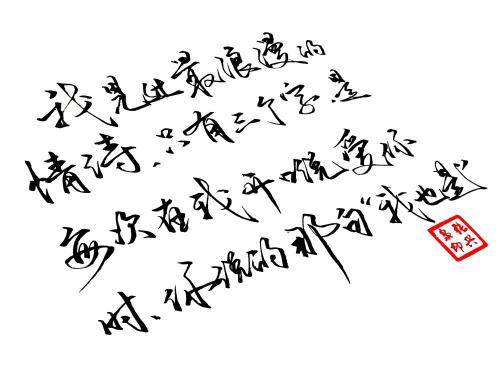 我見过最浪漫的
情诗.只有三个字是
每次在我开口说爱你
时、你说的那句“我也是”